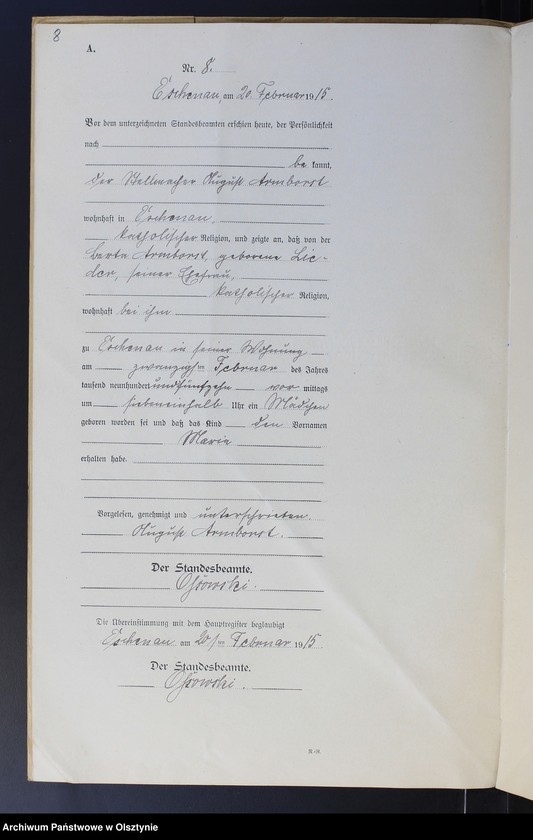 8
A.
Nr. 8.
Eschenau, am 20. Februar 1915.
Vor dem unterzeichneten Standesbeamten erschien heute, der Persönlichkeit
nach
be kannt,
der Stellmacher August Armborst
wohnhaft in Eschenau,
katholischer Religion, und zeigte an, daß von der
Berta Armborst, geborene Lie-
der, seiner Ehefrau,
katholischer Religion,
wohnhaft bei ihm
zu Eschenau in seiner Wohnung
am zwanzigsten Februar des Jahres
tausend neunhundert undfünfzehn vor mittags
um siebeneinhalb Uhr ein Mädchen
geboren worden sei und daß das Kind den Vornamen
Maria
erhalten habe.
Vorgelesen, genehmigt und unterschrieben.
August Armborst.
Der Standesbeamte.
Ossowski.
Die Übereinstimmung mit dem Hauptregister beglaubigt
Eschenau am 20ten Februar 1915.
Der Standesbeamte.
Ossowski.
Archiwum Państwowe w Olsztynie